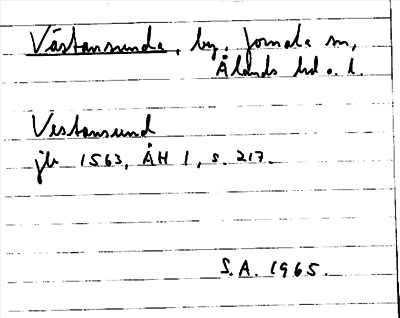 Västansunda, by, Jomala sn,
Ålands hd o. l.
Vestansund
jb 1563, ÅH 1, s. 217.
S.A. 1965.